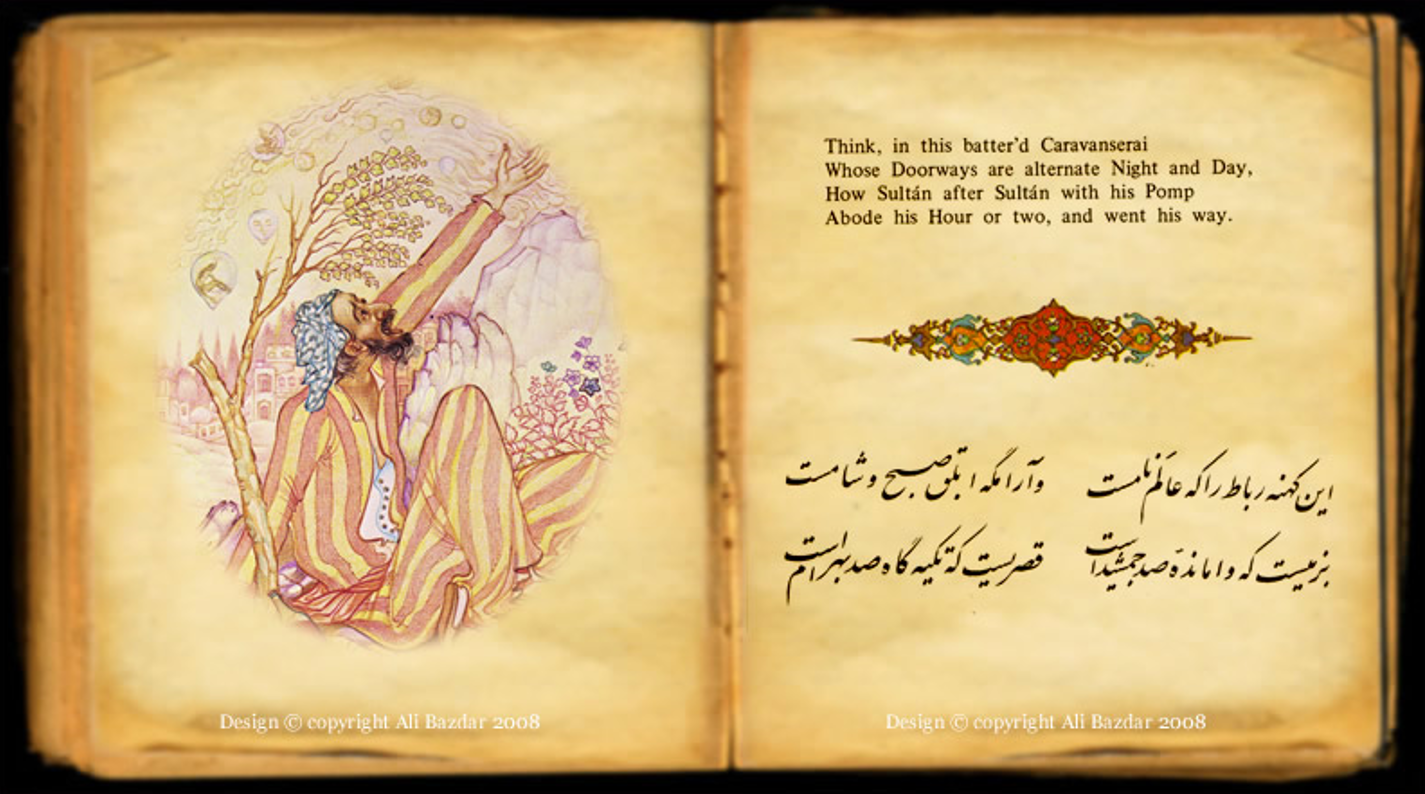 Design © copyright Ali Bazdar 2008
Think, in this batter'd Caravanserai
Whose Doorways are alternate Night and Day,
How Sultán after Sultán with his Pomp
Abode his Hour or two, and went his way.
این کهنه رباط را که عالم نامست وآرامگه ابلق صبح و شامست
بزمیست که واماندهٔ صد جمشیداست قصریست که تکیه گاه صد بهرام است
Design © copyright Ali Bazdar 2008